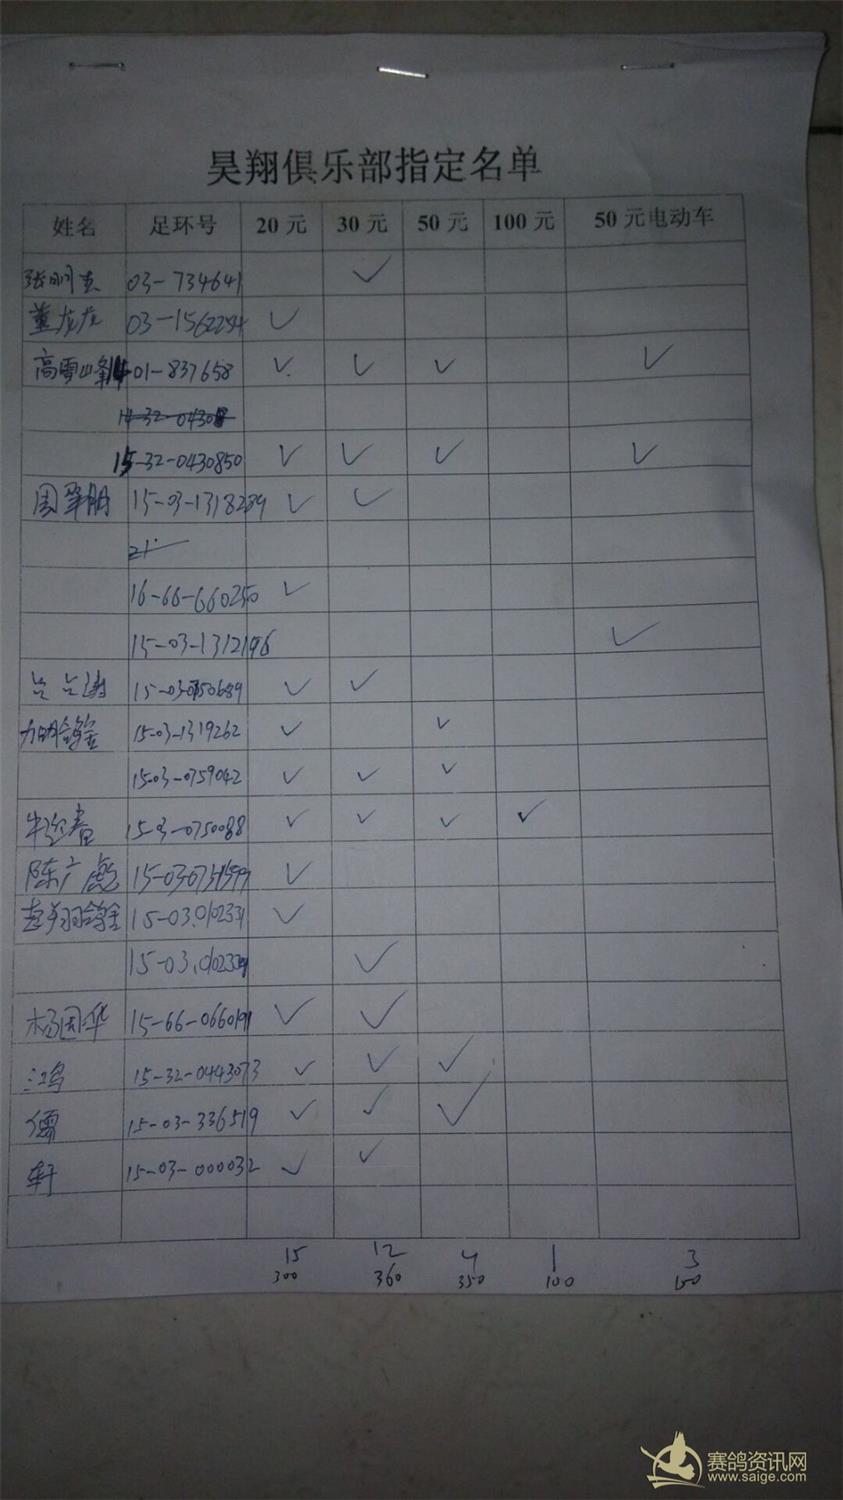 昊翔俱乐部指定名单
姓名 足环号 20 元 30 元 50 元 100 元 50 元电动车
03-734641 ✓
董龙龙 03-1562254 ✓
高雪山峰 14 01-837658 ✓ ✓ ✓ ✓
14-32-04308
15-32-0430850 ✓ ✓ ✓ ✓
周翠鹏 15-03-1318289 ✓ ✓
21
16-66-660250 ✓
15-03-1312196 ✓
15-03-0750689 ✓ ✓
加明鸽舍 15-03-1319262 ✓ ✓
15-03-0759042 ✓ ✓ ✓
15-3-0750088 ✓ ✓ ✓ ✓
陈广彪 ✓
翔鸽舍 15-03.0102331 ✓
✓
杨国华 15-66-0660191 ✓ ✓
鸿 15-32-0443073 ✓ ✓ ✓
儒 15-03-336519 ✓ ✓ ✓
轩 15-03-000032 ✓ ✓
15 12 1 3
300 360 350 100 150
赛鸽资讯网
www.saige.com